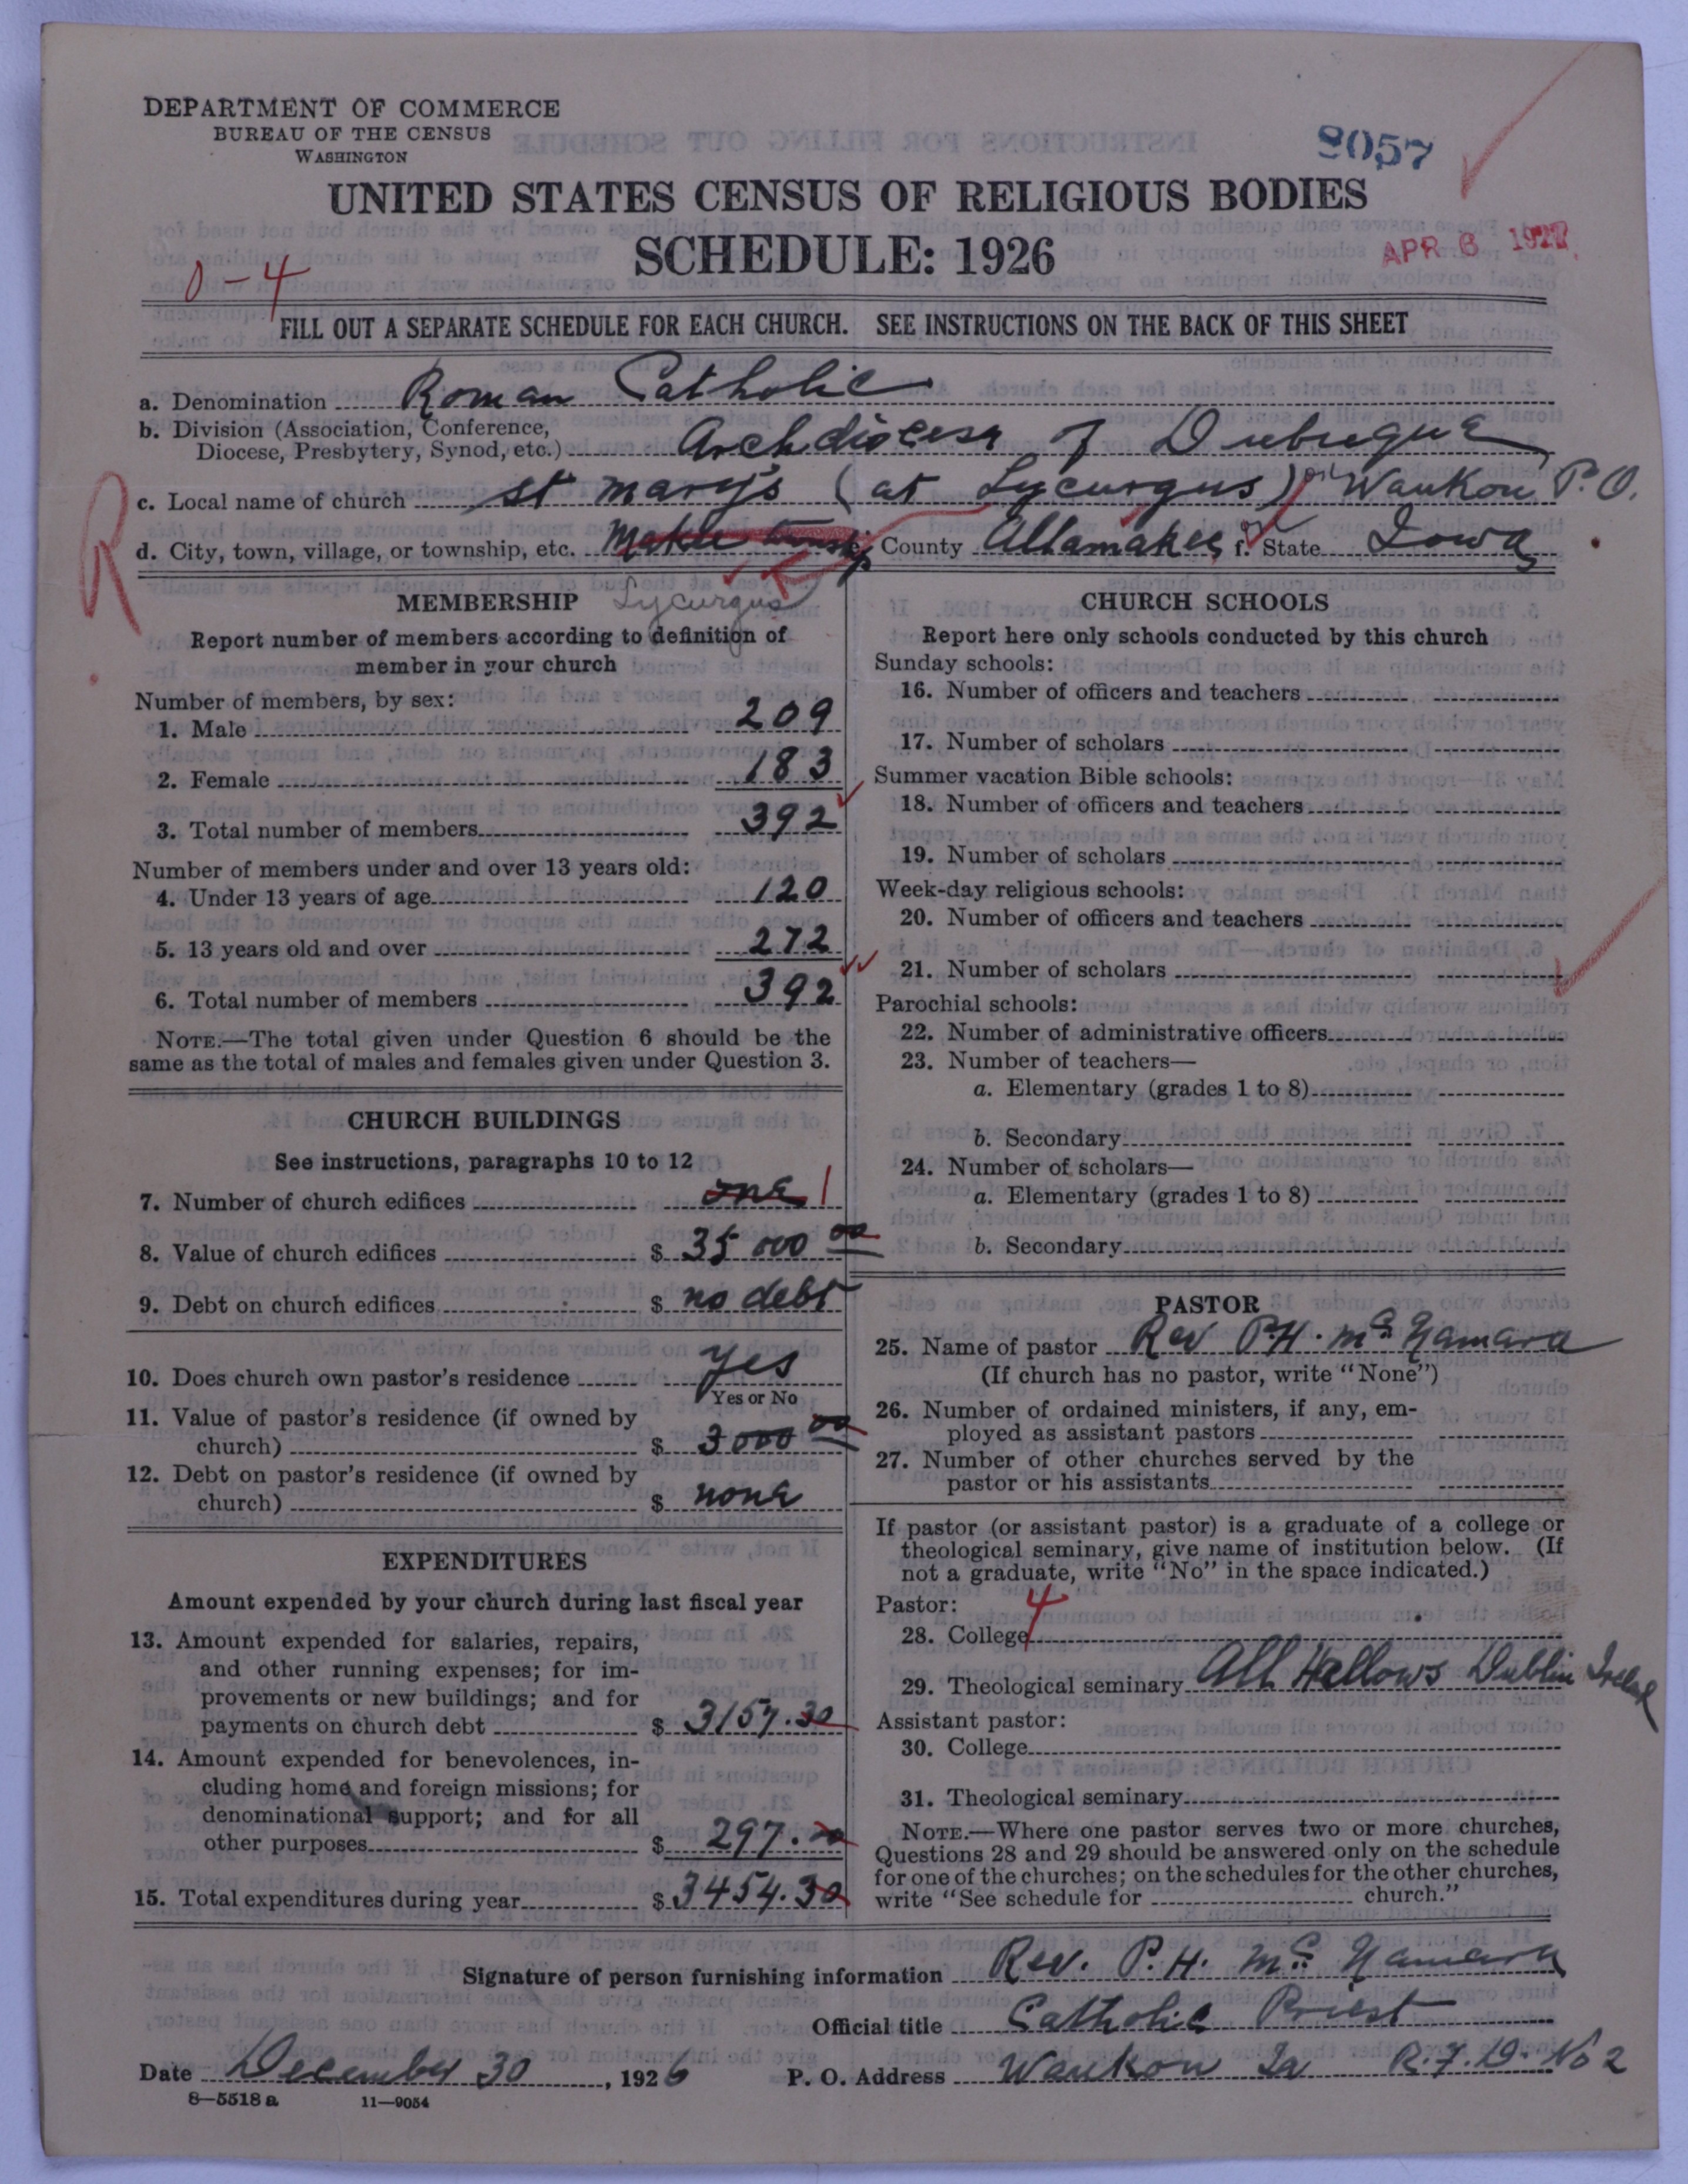 DEPARTMENT OF COMMERCE
BUREAU OF THE CENSUS
WASHINGTON
8057
UNITED STATES CENSUS OF RELIGIOUS BODIES
SCHEDULE: 1926
APR 6 1927
0-4
FILL OUT A SEPARATE SCHEDULE FOR EACH CHURCH. SEE INSTRUCTIONS ON THE BACK OF THIS SHEET
a. Denomination Roman Catholic
b. Division (Association, Conference, Diocese, Presbytery, Synod, etc.) Archdiocese of Dubuque
R
c. Local name of church St Mary's (at Lycurgus) Waukon P.O.
d. City, town, village, or township, etc. County Allamakee State Iowa
Lycurgus
MEMBERSHIP
Report number of members according to definition of
member in your church
Number of members, by sex:
1. Male 209
2. Female 183
3. Total number of members 392
Number of members under and over 13 years old:
4. Under 13 years of age 120
5. 13 years old and over 272
6. Total number of members 392
NOTE.—The total given under Question 6 should be the
same as the total of males and females given under Question 3.
CHURCH BUILDINGS
See instructions, paragraphs 10 to 12
7. Number of church edifices one 1
8. Value of church edifices $ 35 000 00
9. Debt on church edifices $ no debt
10. Does church own pastor's residence yes
Yes or No
11. Value of pastor's residence (if owned by
church) $ 3000 00
12. Debt on pastor's residence (if owned by
church) $ none
EXPENDITURES
Amount expended by your church during last fiscal year
13. Amount expended for salaries, repairs,
and other running expenses; for im-
provements or new buildings; and for
payments on church debt $ 3157.30
14. Amount expended for benevolences, in-
cluding home and foreign missions; for
denominational support; and for all
other purposes $ 297.00
15. Total expenditures during year $ 3454.30
CHURCH SCHOOLS
Report here only schools conducted by this church
Sunday schools:
16. Number of officers and teachers
17. Number of scholars
Summer vacation Bible schools:
18. Number of officers and teachers
19. Number of scholars
Week-day religious schools:
20. Number of officers and teachers
21. Number of scholars
Parochial schools:
22. Number of administrative officers
23. Number of teachers—
a. Elementary (grades 1 to 8)
b. Secondary
24. Number of scholars—
a. Elementary (grades 1 to 8)
b. Secondary
PASTOR
25. Name of pastor Rev P.H. McNamara
(If church has no pastor, write "None")
26. Number of ordained ministers, if any, em-
ployed as assistant pastors
27. Number of other churches served by the
pastor or his assistants
If pastor (or assistant pastor) is a graduate of a college or
theological seminary, give name of institution below. (If
not a graduate, write "No" in the space indicated.)
Pastor: 4
28. College
29. Theological seminary All Hallows Dublin
Assistant pastor:
30. College
31. Theological seminary
NOTE.—Where one pastor serves two or more churches,
Questions 28 and 29 should be answered only on the schedule
for one of the churches; on the schedules for the other churches,
write "See schedule for church."
Signature of person furnishing information Rev. P. H. McNamara
Official title Catholic Priest
Date December 30, 1926 P. O. Address Waukon Ia R.F.D. No 2
8—5518 a 11—9054